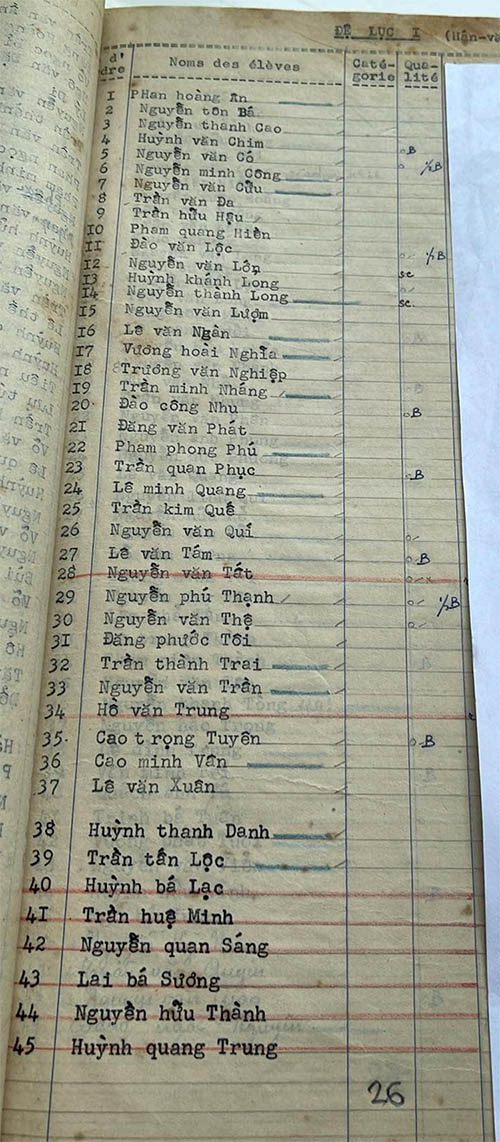 ĐỆ LỤC I (Hán-vă
d'
dre Noms des élèves Caté-
gorie Qua-
lité
1 PHan hoàng Ân
2 Nguyễn tôn Bá
3 Nguyễn thanh Cao
4 Huỳnh văn Chim
5 Nguyễn văn Có B
6 Nguyễn minh Công ½B
7 Nguyễn văn Cửu
8 Trần văn Đa
9 Trần hữu Hậu
10 Phạm quang Hiền
11 Đào văn Lộc ½B
12 Nguyễn văn Lớn
13 Huỳnh khánh Long sc
14 Nguyễn thành Long sc.
15 Nguyễn văn Lượm
16 Lê văn Ngàn
17 Vương hoài Nghĩa
18 Trương văn Nghiệp
19 Trần minh Nháng
20 Đào công Nhu B
21 Đặng văn Phát
22 Phạm phong Phú
23 Trần quan Phục B
24 Lê minh Quang
25 Trần kim Quế
26 Nguyễn văn Quí
27 Lê văn Tám B
28 Nguyễn văn Tất
29 Nguyễn phú Thạnh ½B
30 Nguyễn văn Thệ
31 Đặng phước Tôi
32 Trần thành Trai
33 Nguyễn văn Trần
34 Hồ văn Trung
35 Cao trọng Tuyên B
36 Cao minh Vân
37 Lê văn Xuân
38 Huỳnh thanh Danh
39 Trần tấn Lộc
40 Huỳnh bá Lạc
41 Trần huệ Minh
42 Nguyễn quan Sáng
43 Lai bá Sương
44 Nguyễn hữu Thành
45 Huỳnh quang Trung
26